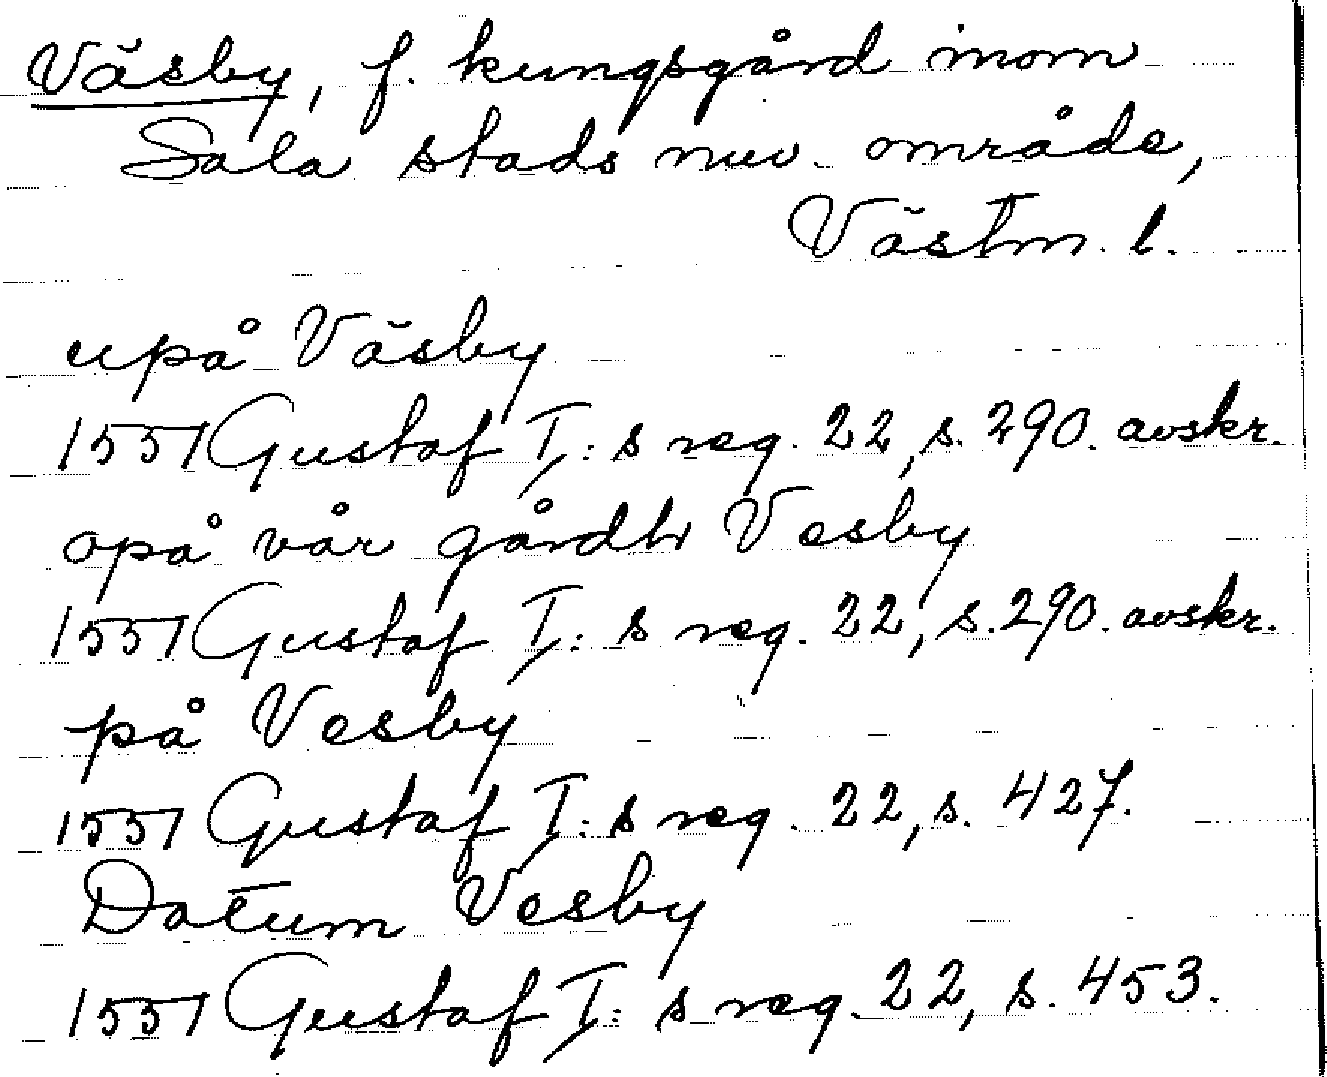 Väsby, f. kungsgård inom
Sala stads nuv. område,
Västm. l.
upå Väsby
1551 Gustaf I: s reg. 22, s. 290. avskr.
opå vår gårdh Vesby
1551 Gustaf I: s reg. 22, s. 290. avskr.
på Vesby
1551 Gustaf I: s reg. 22, s. 427.
Datum Vesby
1551 Gustaf I: s reg. 22, s. 453.